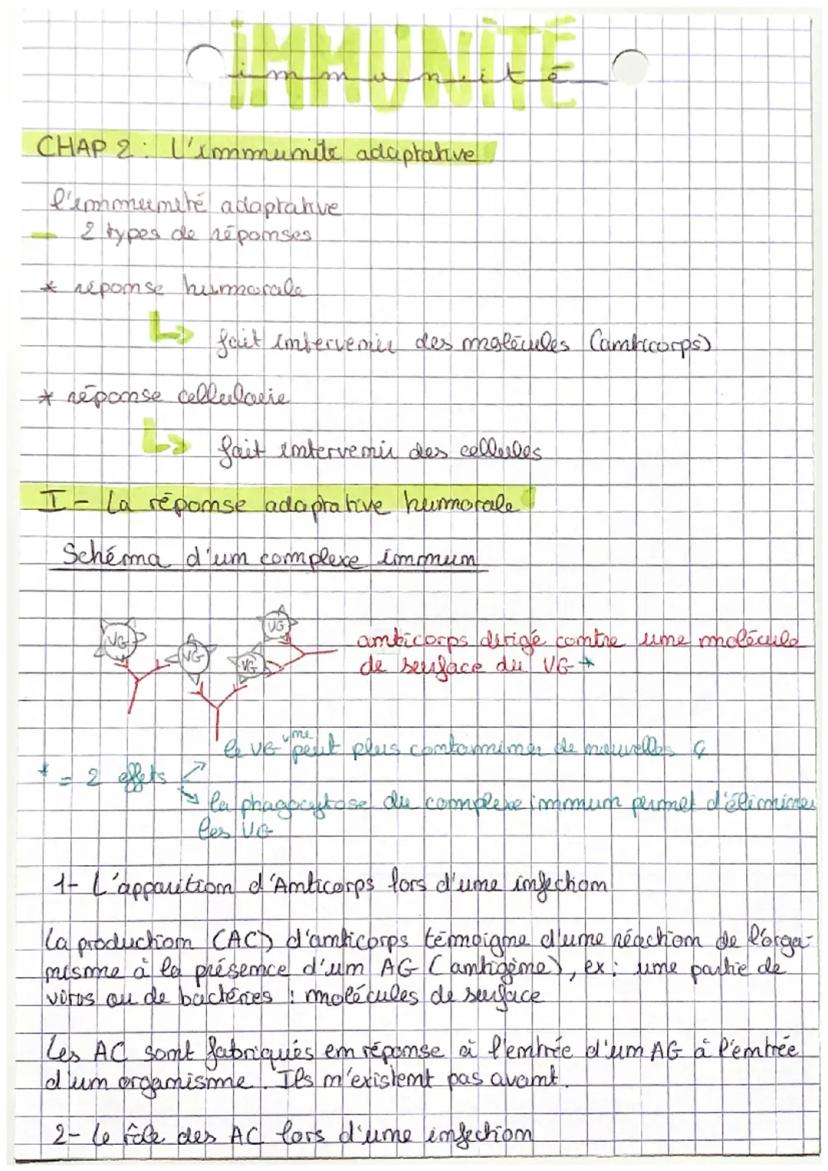 IMMUNITÉ
immunité
CHAP 2 : L'immunité adaptative
l'immunité adaptative
- 2 types de réponses
* réponse humorale
↳ fait intervenir des molécules (anticorps)
* réponse cellulaire
↳ fait intervenir des cellules
I - La réponse adaptative humorale
Schéma d'un complexe immun
VG VG VG VG
anticorps dirigé contre une molécule
de surface du VG *
* = 2 effets
le VG ne peut plus contaminer de nouvelles
la phagocytose du complexe immun permet d'éliminer
les VG
1- L'apparition d'Anticorps lors d'une infection
La production (AC) d'anticorps témoigne d'une réaction de l'orga-
nisme à la présence d'un AG (antigène), ex : une partie de
virus ou de bactéries : molécules de surface
Les AC sont fabriqués en réponse à l'entrée d'un AG à l'entrée
d'un organisme. Ils n'existent pas avant.
2- Le rôle des AC lors d'une infection